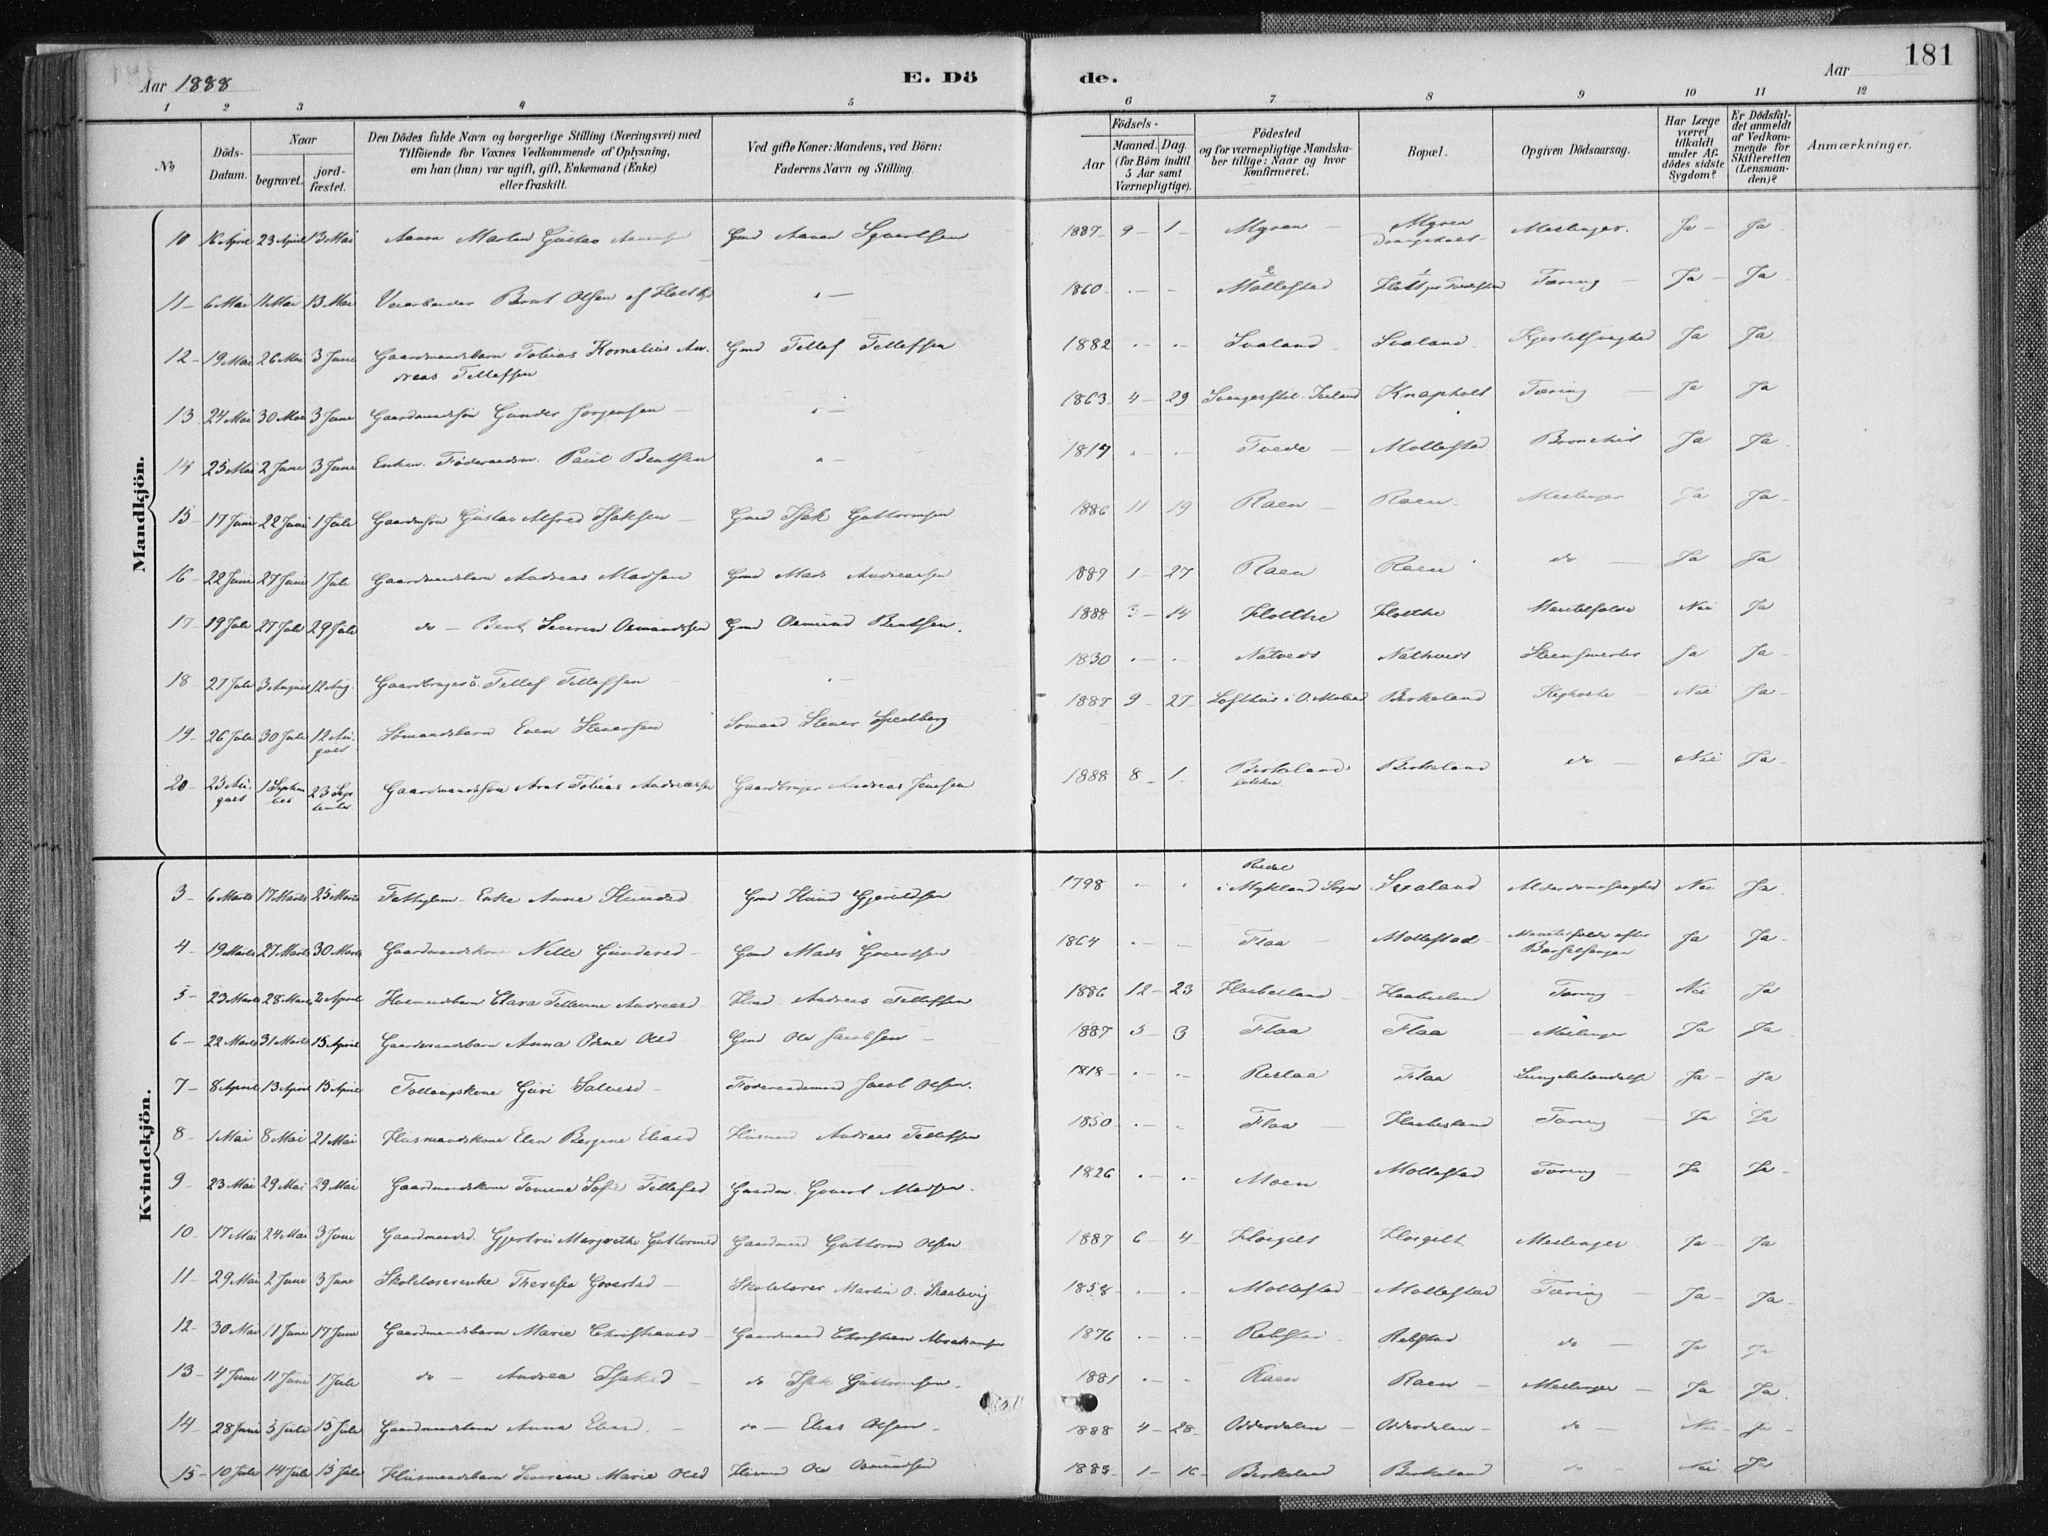 181
Aar 1888
E. Dö
de.
Aar
1 2 3 4 5 6 7 8 9 10 11 12
No.
Döds-Datum.
Naar
begravet.
jord-fæstet.
Den Dödes fulde Navn og borgerlige Stilling (Næringsvei) med
Tilföiende for Voxnes Vedkommende af Oplysning,
om han (hun) var ugift, gift, Enkemand (Enke)
eller fraskilt.
Ved gifte Koner: Mandens, ved Börn:
Faderens Navn og Stilling.
Födsels-
Aar
Maaned. Dag.
(for Börn indtil
5 Aar samt
Værnepligtige).
Födested
og for værnepligtige Mandska-
ber tillige: Naar og hvor
konfirmeret.
Bopæl.
Opgiven Dödsaarsag.
Har Læge
været
tilkaldt
under Af-
dödes sidste
Sygdom?
Er Dödsfal-
det anmeldt
af Vedkom-
mende for
Skifteretten
(Lensman-
den)?
Anmærkninger.
Mandkjön.
10 16 April 23 April 13 Mai Aanon Martin Gustav Aanensen Gmd Aanen Syvertsen 1887 9 - 1 - Myren - Myren Meslinger. Ja - Ja
11 - 6 Mai 11 Mai 13 Mai Veiarbeider Bernt Olsen af Holt " - 1860 - Mollestad Tæring - Ja - Ja -
12 - 19 Mai 26 Mai 3 Juni Gaardmandsbarn Tobias Kornelius An-
dreas Tellefsen Gmd Tellef Tellefsen 1882 Svaland Svaland Kjertelsvaghed Ja Ja
13 24 Mai 30 Mai 3 Juni Gaardmandssøn Gunder Jørgensen - " - 1863 4 - 29 Iveland Knapholt Tæring - Ja Ja
14 25 Mai 2 Juni 3 Juni Enkem. Føderaadsm. Paul Bentsen " - 1817 Tvede - Mollestad Bronchit Ja Ja
15 - 17 Juni 22 Juni 1 Juli Gaardmsøn Gustav Alfred Isaksen - Gmd Isak Guttormsen 1886 11 19 Raen - Raen Meslinger Ja Ja -
16 - 22 Juni 27 Juni 1 Juli Gaardmandsbarn Andreas Madsen Gmd Mads Andreassen 1887 1 - 27 Raen Raen do - Ja Ja
17 - 19 Juli 27 Juli 29 Juli do - Bent Severin Osmundsen Gmd Osmund Bentsen. 1888 3 - 14 Nei Ja
18 21 Juli 3 August 12 Aug. Tellef Tellefsen - 1830 Natveds Ja Ja -
19 - 26 Juli 30 Juli 12 Au-
gust Sømandsbarn Even Stenersen Sømand Stener 1887 9 - 27 - Birkeland Kighoste - Nei Ja -
20 - 25 Au-
gust 1 Septem-
ber 23 Sep-
tember Gaardmandssøn Arnt Tobias Andreassen Gaardbruger Andreas Jensen 1888 8 - 1 Birkeland Birkeland do - Nei Ja -
Kvindekjön.
3 - 6 Marts 17 Marts 25 Marts Enke Anne Gmd 1798 i Mykland Sogn Svaland Alderdomssvaghed Nei Ja
4 - 19 Marts 27 Marts 30 Marts Gaardmandskone Nille Gundersd - Gmd Mads Govertsen 1864 Flaa - Mollestad - Ja Ja -
5 - 23 Marts 28 Marts 2 April Husmandsbarn Clara Tellevine Andreasd - Hmd Andreas Tellefsen 1886 12 - 23 Haabesland - Haabesland Tæring - Nei Ja
6 - 22 Marts 31 Marts 15 April Gaardmandsbarn Anna Olsd Gmd Ole Jacobsen - 1887 5 - 3 Flaa Flaa - Meslinger Ja Ja
7 - 8 April 13 April 15 April Guri Salvesd - Føderaadsmand Jacob Olsen. 1818 - Reslaa Flaa Lungebetændelse Ja - Ja
8 - 1 Mai 8 Mai 21 Mai Husmandskone Elen Bergine Eliasd Husmd Andreas Tellefsen 1850 Flaa - Haabesland Tæring - Ja Ja
9 - 23 Mai 29 Mai 29 Mai Gaardmandskone Tomine Sofie Tellefsd Gaardm. Govert Madsen. 1826 Moen Mollestad Tæring - Ja Ja -
10 - 17 Mai 24 Mai 3 Juni Gaardmandsd. Gjertrui Margrethe Guttormsd Gaardmand Guttorm Olsen 1887 6 - 4 - Høigilt Høigilt Meslinger Ja - Ja
11 - 29 Mai 2 Juni 3 Juni Skolelærerenke Theresia Govertsd - Skolelærer Martin O. Skaalevig 1858 Mollestad - Mollestad Tæring - Ja - Ja -
12 - 30 Mai 11 Juni 17 Juni Gaardmandsbarn Marie Christiansd - Gaardmand Christian Abrahamsen 1876 Retstad Retstad do - Ja Ja
13 - 4 Juni 11 Juni 1 Juli do - Andrea Isaksd - do Isak Guttormsen. 1881 Raen Raen - Meslinger - Ja Ja
14 - 28 Juni 5 Juli 15 Juli Gaardmandsbarn Anna Eliasd. - do - Elias Olsen - 1888 4 - 28 - Odderdalen - Odderdalen - do - Nei - Ja -
15 - 10 Juli 14 Juli 15 Juli Husmandsbarn Severine Marie Olsd Husmd Ole Osmundsen 1888 1 - 16 - Birkeland Birkeland do - Nei Ja